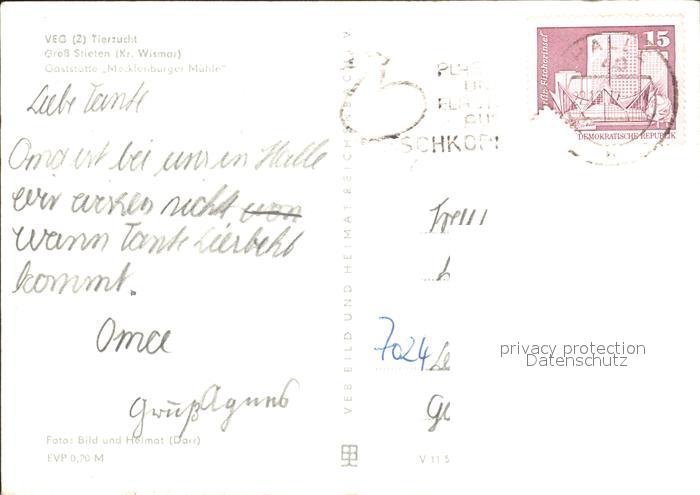 VEG (Z) Tierzucht
Groß Stieten (Kr. Wismar)
Gaststätte „Mecklenburger Mühle"
Liebe Tante
Oma ist bei uns in Halle
wir wissen nicht von
wann Tante Lisbeht
kommt.
Oma
Gruß Agnes
Foto: Bild und Heimat (Darr)
EVP 0,20 M
VEB BILD UND HEIMAT REICHENBACH I. V
PLAS
SCHKOP
15
DEMOKRATISCHE REPUBLIK
7024 Le
privacy protection
Datenschutz
V 11 5